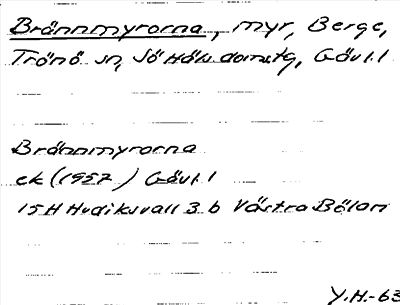 Brännmyrorna, myr, Berge,
Trönö sn, Sö Häls domstg, Gävl.l
Brännmyrorna
ek (1957 ) Gävl.l
15H Hudiksvall 3 b Västra Bölan
Y.H.-63